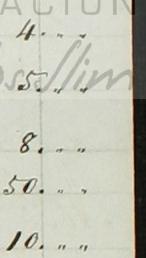 ACION
4. " "
5. " "
8. " "
50. " "
10. " "